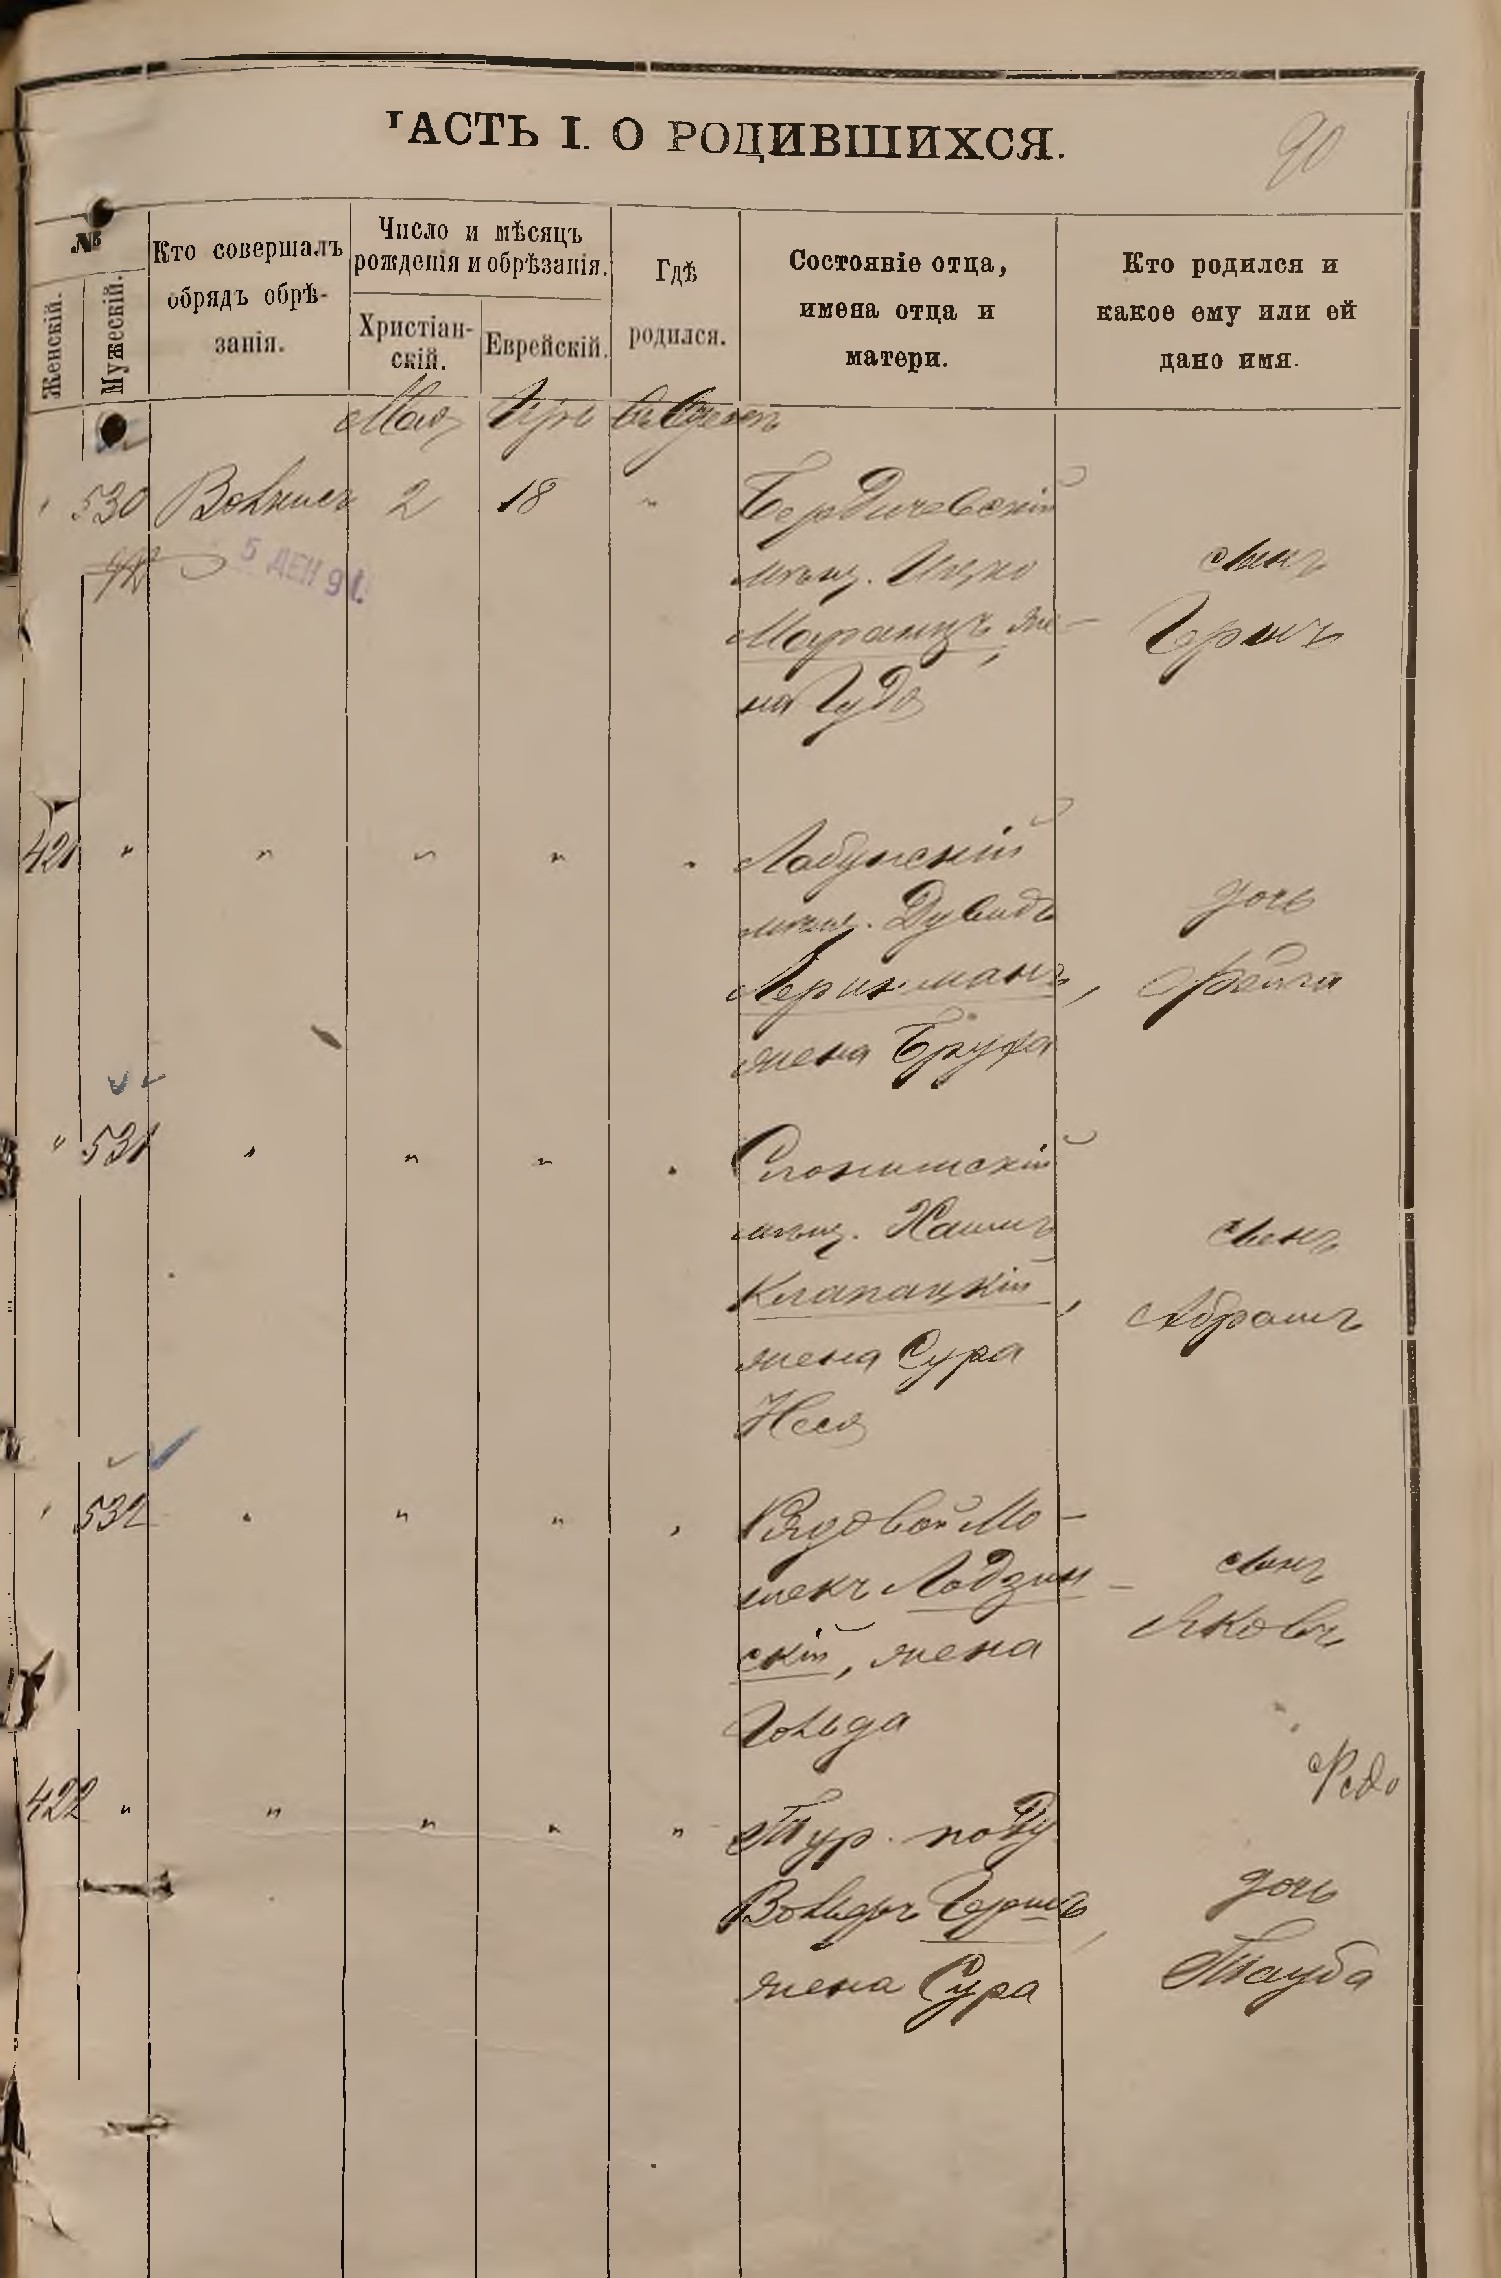 ЧАСТЬ I. О РОДИВШИХСЯ.
90
№
Женскій.
Мужескій.
Кто совершалъ
обрядъ обрѣ-
занія.
Число и мѣсяцъ
рожденія и обрѣзанія.
Христіан-
скій.
Еврейскій.
Гдѣ
родился.
Состояніе отца,
имена отца и
матери.
Кто родился и
какое ему или ей
дано имя.
Мая Іръ въ Одессѣ
" 530 2 18 "
Бердичевскій
мѣщ. Ицко
Маранцъ, же-
на Гудя
сынъ
Гершъ
5 ДЕК 91
421 " " " " "
Лабунскій
мѣщ. Дувидъ
Лерихманъ,
жена Бруха
дочь
Фейга
" 531 " " " "
Слонимскій
мѣщ. Хаимъ
Клапацкій,
жена Сура
Неся
сынъ
Абрамъ
" 532 " " " "
Рядовой Мо-
шекъ Лодзин-
скій, жена
Гольда
сынъ
Яковъ
422 " " " " "
Тур. подд.
Вольфъ Гершъ,
жена Сура
дочь
Тауба